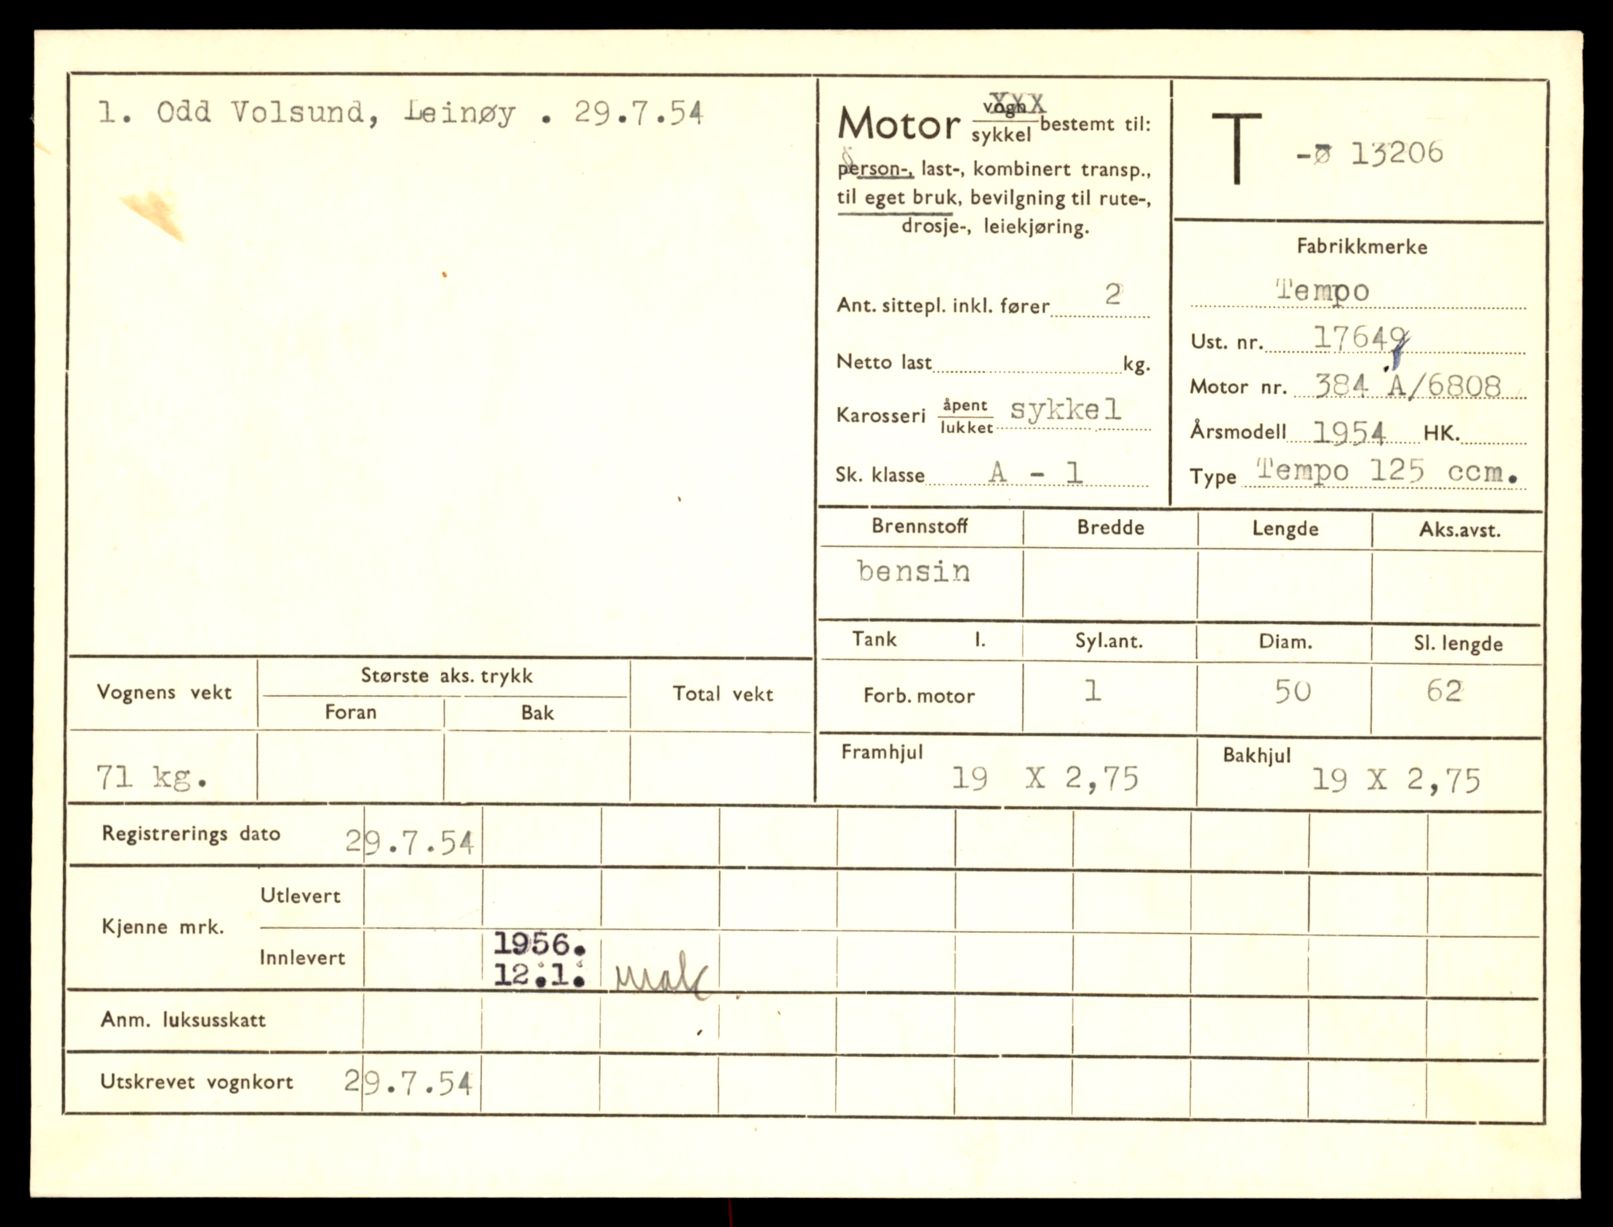 1. Odd Volsund, Leinøy . 29.7.54
Motor vogn XXX / sykkel bestemt til:
person-, last-, kombinert transp.,
til eget bruk, bevilgning til rute-,
drosje-, leiekjøring.
Ant. sittepl. inkl. fører 2
Netto last kg.
Karosseri åpent / lukket sykkel
Sk. klasse A - 1
T -ø 13206
Fabrikkmerke
Tempo
Ust. nr. 17649
Motor nr. 384 A/6808
Årsmodell 1954 HK.
Type Tempo 125 ccm.
Brennstoff Bredde Lengde Aks.avst.
bensin
Tank l. Syl.ant. Diam. Sl. lengde
Forb. motor 1 50 62
Framhjul 19 X 2,75
Bakhjul 19 X 2,75
Vognens vekt Største aks. trykk Total vekt
Foran Bak
71 kg.
Registrerings dato 29.7.54
Kjenne mrk. Utlevert
Innlevert 1956.
12.1.
Anm. luksusskatt
Utskrevet vognkort 29.7.54